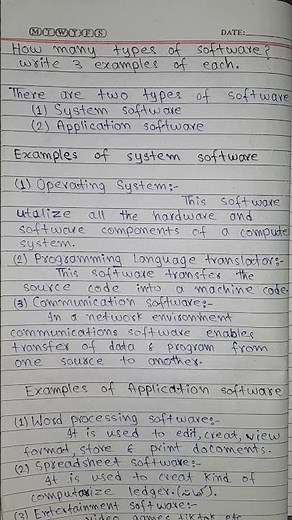 M T W T F S DATE:
How many types of software?
write 3 examples of each.
There are two types of software
(1) System software
(2) Application software
Examples of system software
(1) Operating System:-
This software
utalize all the hardware and
software components of a compute
system.
(2) Programming Language translator:-
This software transfer the
source code into a machine code.
(3) Communication software:-
In a network environment
communications software enables
transfer of data & program from
one source to another.
Examples of Application software
(1) Word processing software:-
It is used to edit, creat, view
format, store & print documents.
(2) Spreadsheet software:-
It is used to creat kind of
computarize ledger.
(3) Entertainment software:-
video games, tiktok etc